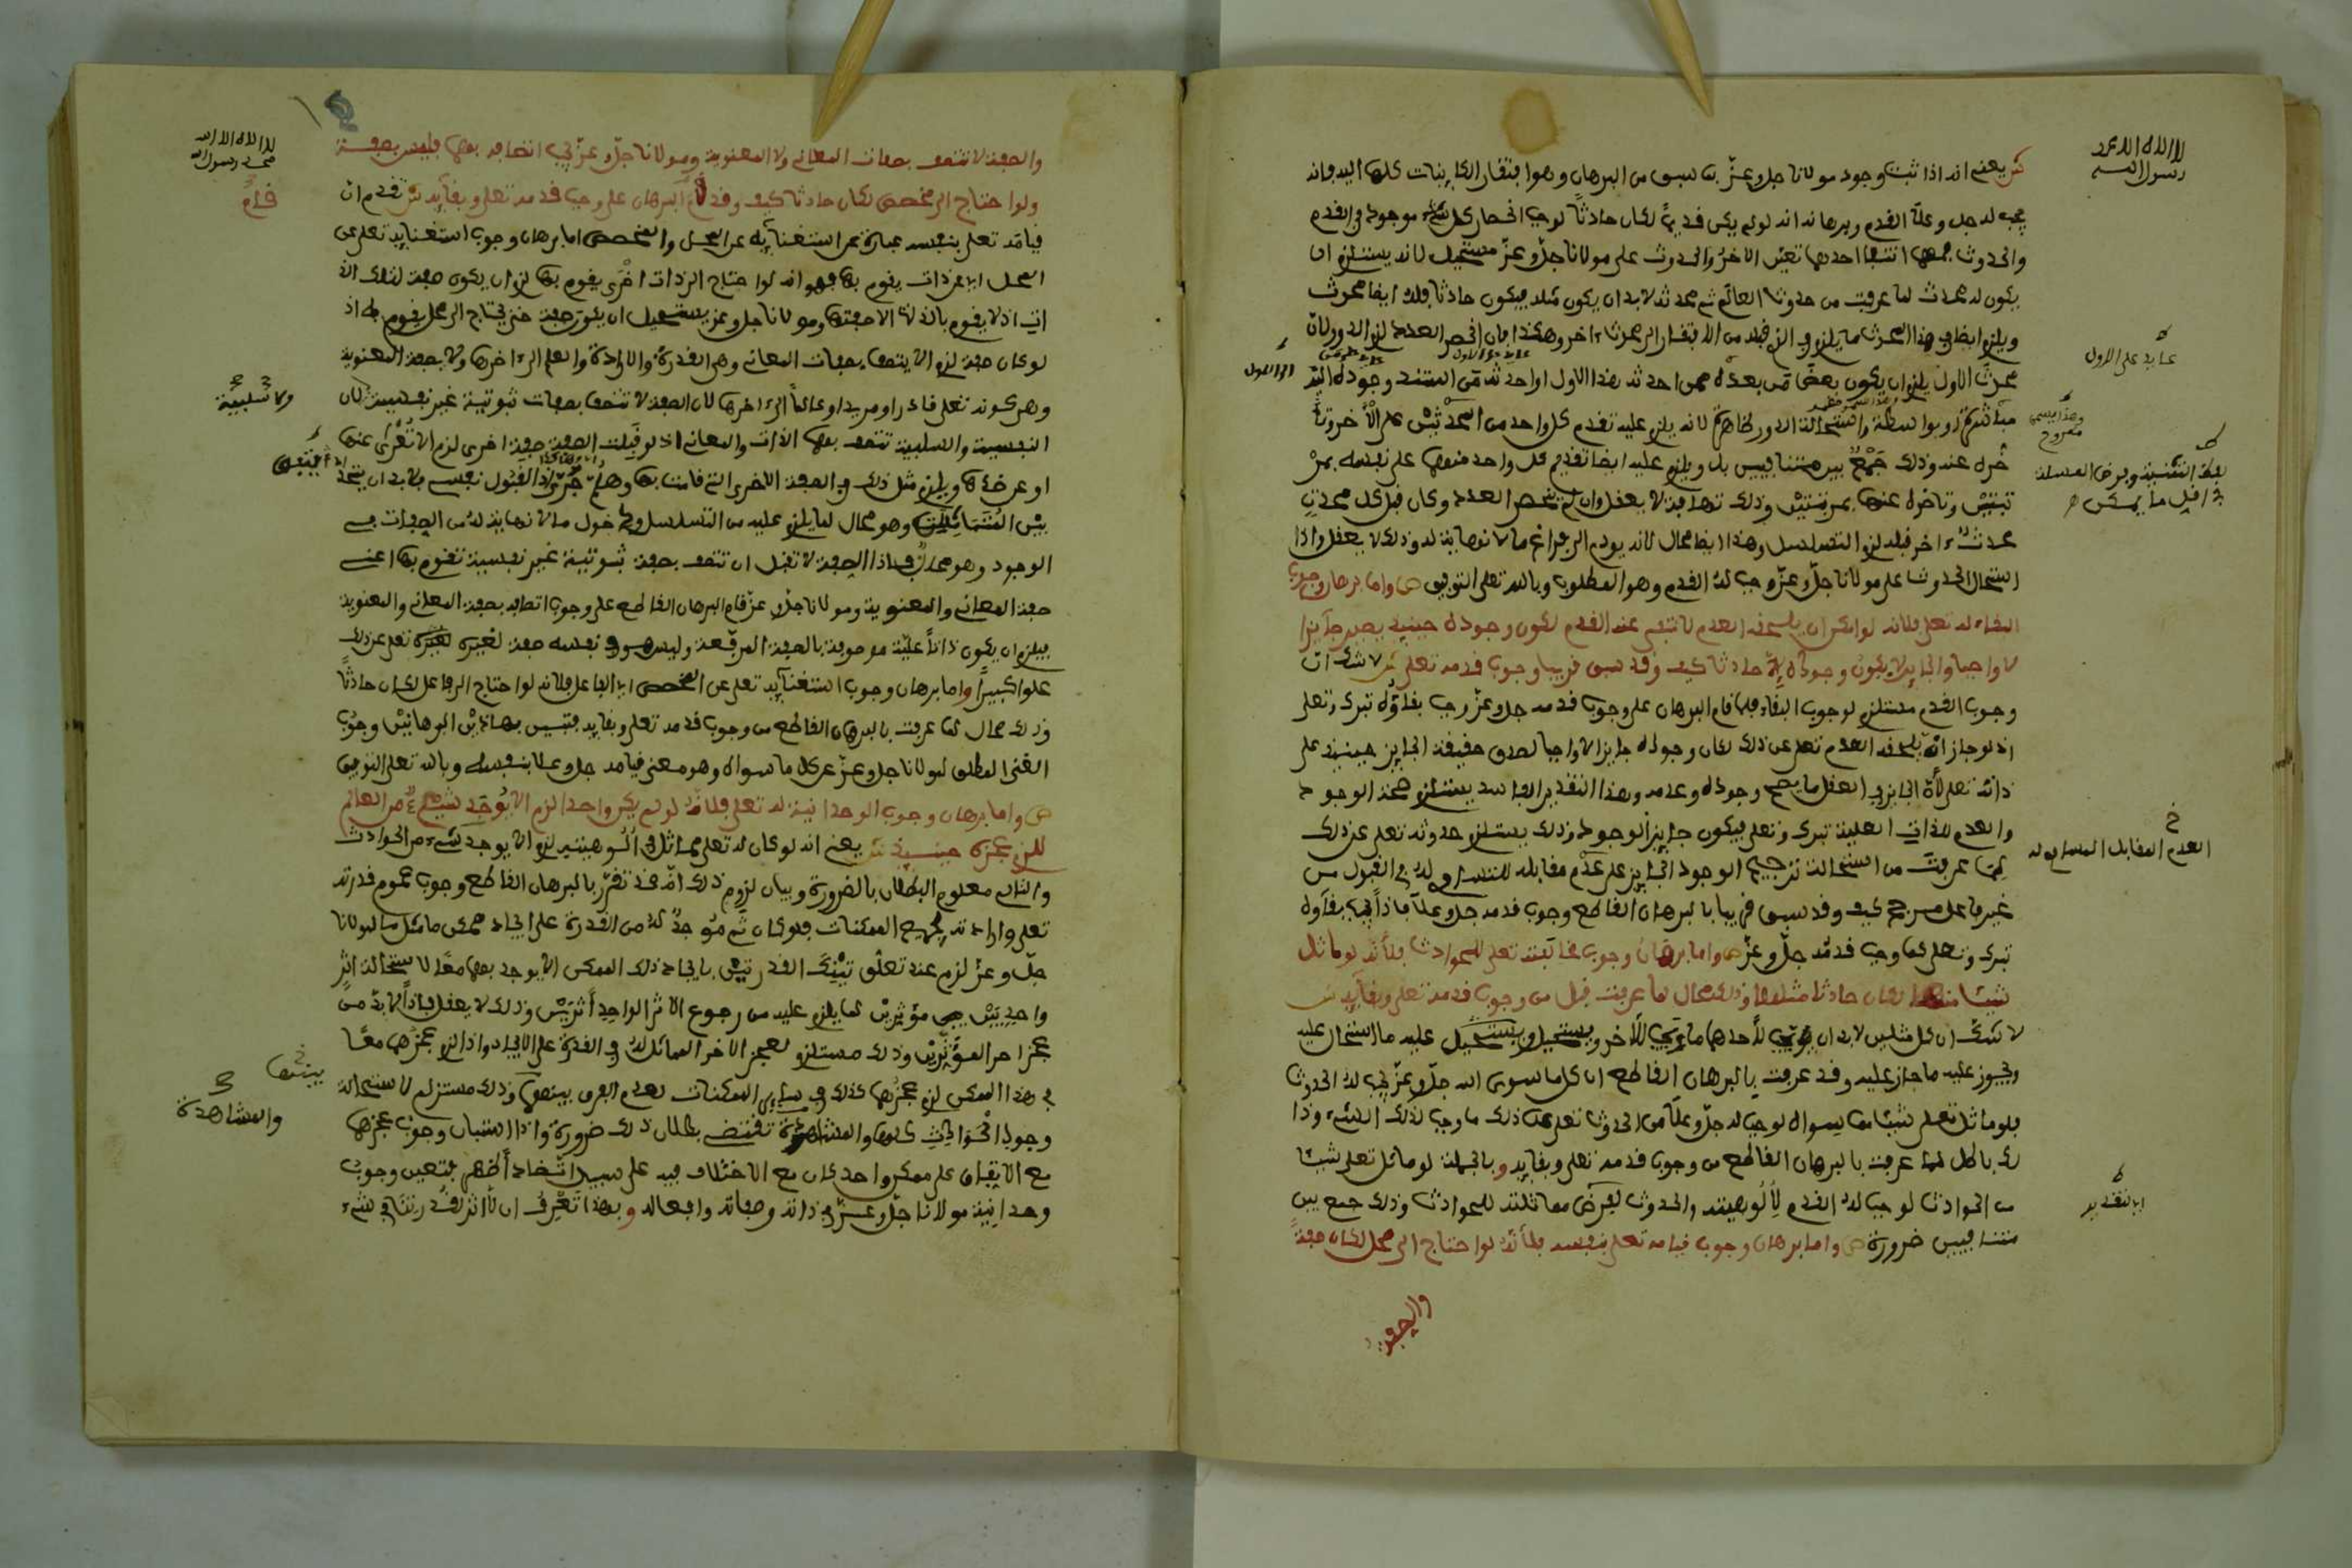 لا اله الا الله محمد
رسول الله
ش يعني انه اذا ثبت وجود مولانا جل وعز بما سبق من البرهان وهو افتقار الكاينات كلها اليه فانه
يجب له جل وعلا القدم وبرهانه انه لو لم يكن قديما لكان حادثا لوجوب انحصار كل شيء موجود في القدم
والحدوث فمهما انتفى احدهما تعين الاخر والحدوث على مولانا جل وعز مستحيل لانه يستلزم ان
يكون له محدث لما عرفت من حدوث العالم ثم محدثه لا بد ان يكون مثله فيكون حادثا فله ايضا محدث
ويلزم ايضا في هذا المحدث ما يلزم في الذي قبله من الافتقار الى محدث ءاخر وهكذا فان انحصر العدد لزم الدور لان
محدث الاول يلزم ان يكون بعض من بعده ممن احدثه هذا الاول او احدثه من استند وجوده اليه
مباشرة او بواسطة واستحالة الدور ظاهرة لانه يلزم عليه تقدم كل واحد من المحدثين على الاخر وتا
خره عنه وذلك جمع بين متنافيين بل ويلزم عليه ايضا تقديم كل واحد منهما على نفسه بمر
تبتين وتاخره عنها بمرتبتين وذلك تهافت لا يعقل وان لم ينحصر العدد وكان قبل كل محدث
محدث ءاخر قبله لزم التسلسل وهذا ايضا محال لانه يودي الى فراغ ما لا نهاية له وذلك لا يعقل واذا
استحال الحدوث على مولانا جل وعز وجب له القدم وهو المطلوب وبالله تعلى التوفيق ص واما برهان وجوب
البقاء له تعلى فلانه لو امكن ان يلحقه العدم لانتفى عنه القدم لكون وجوده حينيذ يصير جايزا
لا واجبا والجايز لا يكون وجوده الا حادثا كيف وقد سبق قريبا وجوب قدمه تعلى ش لا شك ان
وجوب القدم مستلزم لوجوب البقاء فلما قام البرهان على وجوب قدمه جل وعز وجب بقاؤه تبرك وتعلى
اذ لو جاز ان يلحقه العدم تعلى عن ذلك لكان وجوده جايزا لا واجبا لصدق حقيقة الجايز حينيذ على
ذاته تعلى لان الجايز في العقل ما يصح وجوده وعدمه وهذا التقدير الفاسد يستلزم صحة الوجود
والعدم للذات العلية تبرك وتعلى فيكون جايز الوجود وذلك يستلزم حدوثه تعلى عن ذلك
لما عرفت من استحالة ترجيح الوجود الجايز على عدم مقابله المساوي له في القبول من
غير فاعل مرجح كيف وقد سبق قريبا بالبرهان القاطع وجوب قدمه جل وعلا فاذا يجب بقاؤه
تبرك وتعلى كما وجب قدمه جل وعز ص واما برهان وجوب مخالفته تعلى للحوادث فلانه لو ماثل
شيئا منها لكان حادثا مثلها وذلك محال لما عرفت قبل من وجوب قدمه تعلى وبقايه ش
لا شك ان كل مثلين لا بد ان يجب لاحدهما ما وجب للاخر ويستحيل عليه ما استحال عليه
ويجوز عليه ما جاز عليه وقد عرفت بالبرهان القاطع ان كل ما سوى الله جل وعز يجب له الحدوث
فلو ماثل تعلى شيئا مما سواه لوجب له جل وعلا من الحدوث تعلى عن ذلك ما وجب لذلك الشيء وذا
لك باطل لما عرفت بالبرهان القاطع من وجوب قدمه تعلى وبقايه وبالجملة لو ماثل تعلى شيئا
من الحوادث لوجب له القدم لالوهيته والحدوث لفرض مماثلته للحوادث وذلك جمع بين
متنافيين ضرورة ص واما برهان وجوب قيامه تعلى بنفسه فلانه لو احتاج الى محل لكان صفة
والصفة
عايد على الاول
العدم المقابل المساوي له
اي لتقدير
لا اله الا الله
محمد رسول الله
والصفة لا تتصف بصفات المعاني ولا المعنوية ومولانا جل وعز يجب اتصافه بهما فليس بصفة
ولو احتاج الى مخصص لكان حادثا كيف وقد قام البرهان على وجوب قدمه تعلى وبقايه ش تقدم ان
قيامه تعلى بنفسه عبارة عن استغنايه عن المحل والمخصص اما برهان وجوب استغنايه تعلى عن
المحل اي عن ذات يقوم بها فهو انه لو احتاج الى ذات اخرى يقوم بها لزم ان يكون صفة لتلك الذا
ت اذ لا يقوم بالذات الا صفتها ومولانا جل وعز يستحيل ان يكون صفة حتى يحتاج الى محل يقوم به اذ
لو كان صفة لزم الا يتصف بصفات المعاني وهي القدرة والارادة والعلم الى ءاخرها ولا بصفة المعنوية
وهي كونه تعلى قادرا ومريدا وعالما الى ءاخرها لان الصفة لا تتصف بصفات ثبوتية غير نفسية لان
النفسية والسلبية تتصف بهما الذات والمعاني اذ لو قبلت الصفة صفة اخرى لزم الا تعرى عنها
او عن ضدها ويلزم مثل ذلك في الصفة الاخرى التي قامت بها وهلم جرا اذ القبول نفسي لا بد ان يتحد
بين المتماثلين وهو محال لما يلزم عليه من التسلسل ودخول ما لا نهاية له من الصفات في
الوجود وهو محال فاذا الصفة لا تقبل ان تتصف بصفة ثبوتية غير نفسية تقوم بها اعني
صفة المعاني والمعنوية ومولانا جل وعز قام البرهان القاطع على وجوب اتصافه بصفة المعاني والمعنوية
فيلزم ان يكون ذاتا علية موصوفة بالصفة المرفعة وليس هو في نفسه صفة لغيره تعلى عن ذلك
علوا كبيرا واما برهان وجوب استغنايه تعلى عن المخصص اي الفاعل فلانه لو احتاج الى فاعل لكان حادثا
وذلك محال لما عرفت بالبرهان القاطع من وجوب قدمه تعلى وبقايه فتبين بهاذين البرهانين وجوب
الغنى المطلق لمولانا جل وعز عن كل ما سواه وهو معنى قيامه جل وعلا بنفسه وبالله تعلى التوفيق
ص واما برهان وجوب الوحدانية له تعلى فلانه لو لم يكن واحدا لزم الا يوجد شيء من العالم
للزوم عجزه حينيذ ش يعني انه لو كان له تعلى مماثل في الوهيته لزم الا يوجد شيء من الحوادث
والتالي معلوم البطلان بالضرورة وبيان لزوم ذلك انه قد تقرر بالبرهان القاطع وجوب عموم قدرته
تعلى وارادته لجميع الممكنات فلو كان ثم موجد له من القدرة على ايجاد ممكن ما مثل ما لمولانا
جل وعز لزم عند تعلق تينك القدرتين بايجاد ذلك الممكن الا يوجد بهما معا لاستحالة اثر
واحد بين مؤثرين لما يلزم عليه من رجوع الاثر الواحد اثرين وذلك لا يعقل فاذا لا بد من
عجز احد المؤثرين وذلك مستلزم لعجز الاخر المماثل له في القدرة على الايجاد واذا لزم عجزهما معا
في هذا الممكن لزم عجزهما كذلك في ساير الممكنات لعدم الفرق بينهما وذلك مستلزم لاستحالة
وجود الحوادث كلها والمشاهدة تقتضي بطلان ذلك ضرورة واذا استبان وجوب عجزهما
مع الاتفاق على ممكن واحد كان مع الاختلاف فيه على سبيل التضاد اظهر فتعين وجوب
وحدانية مولانا جل وعز في ذاته وصفاته وافعاله وبهذا تعرف ان لا اثر لقدرتنا في شيء
ولا سلبية
بينهما
والمشاهدة